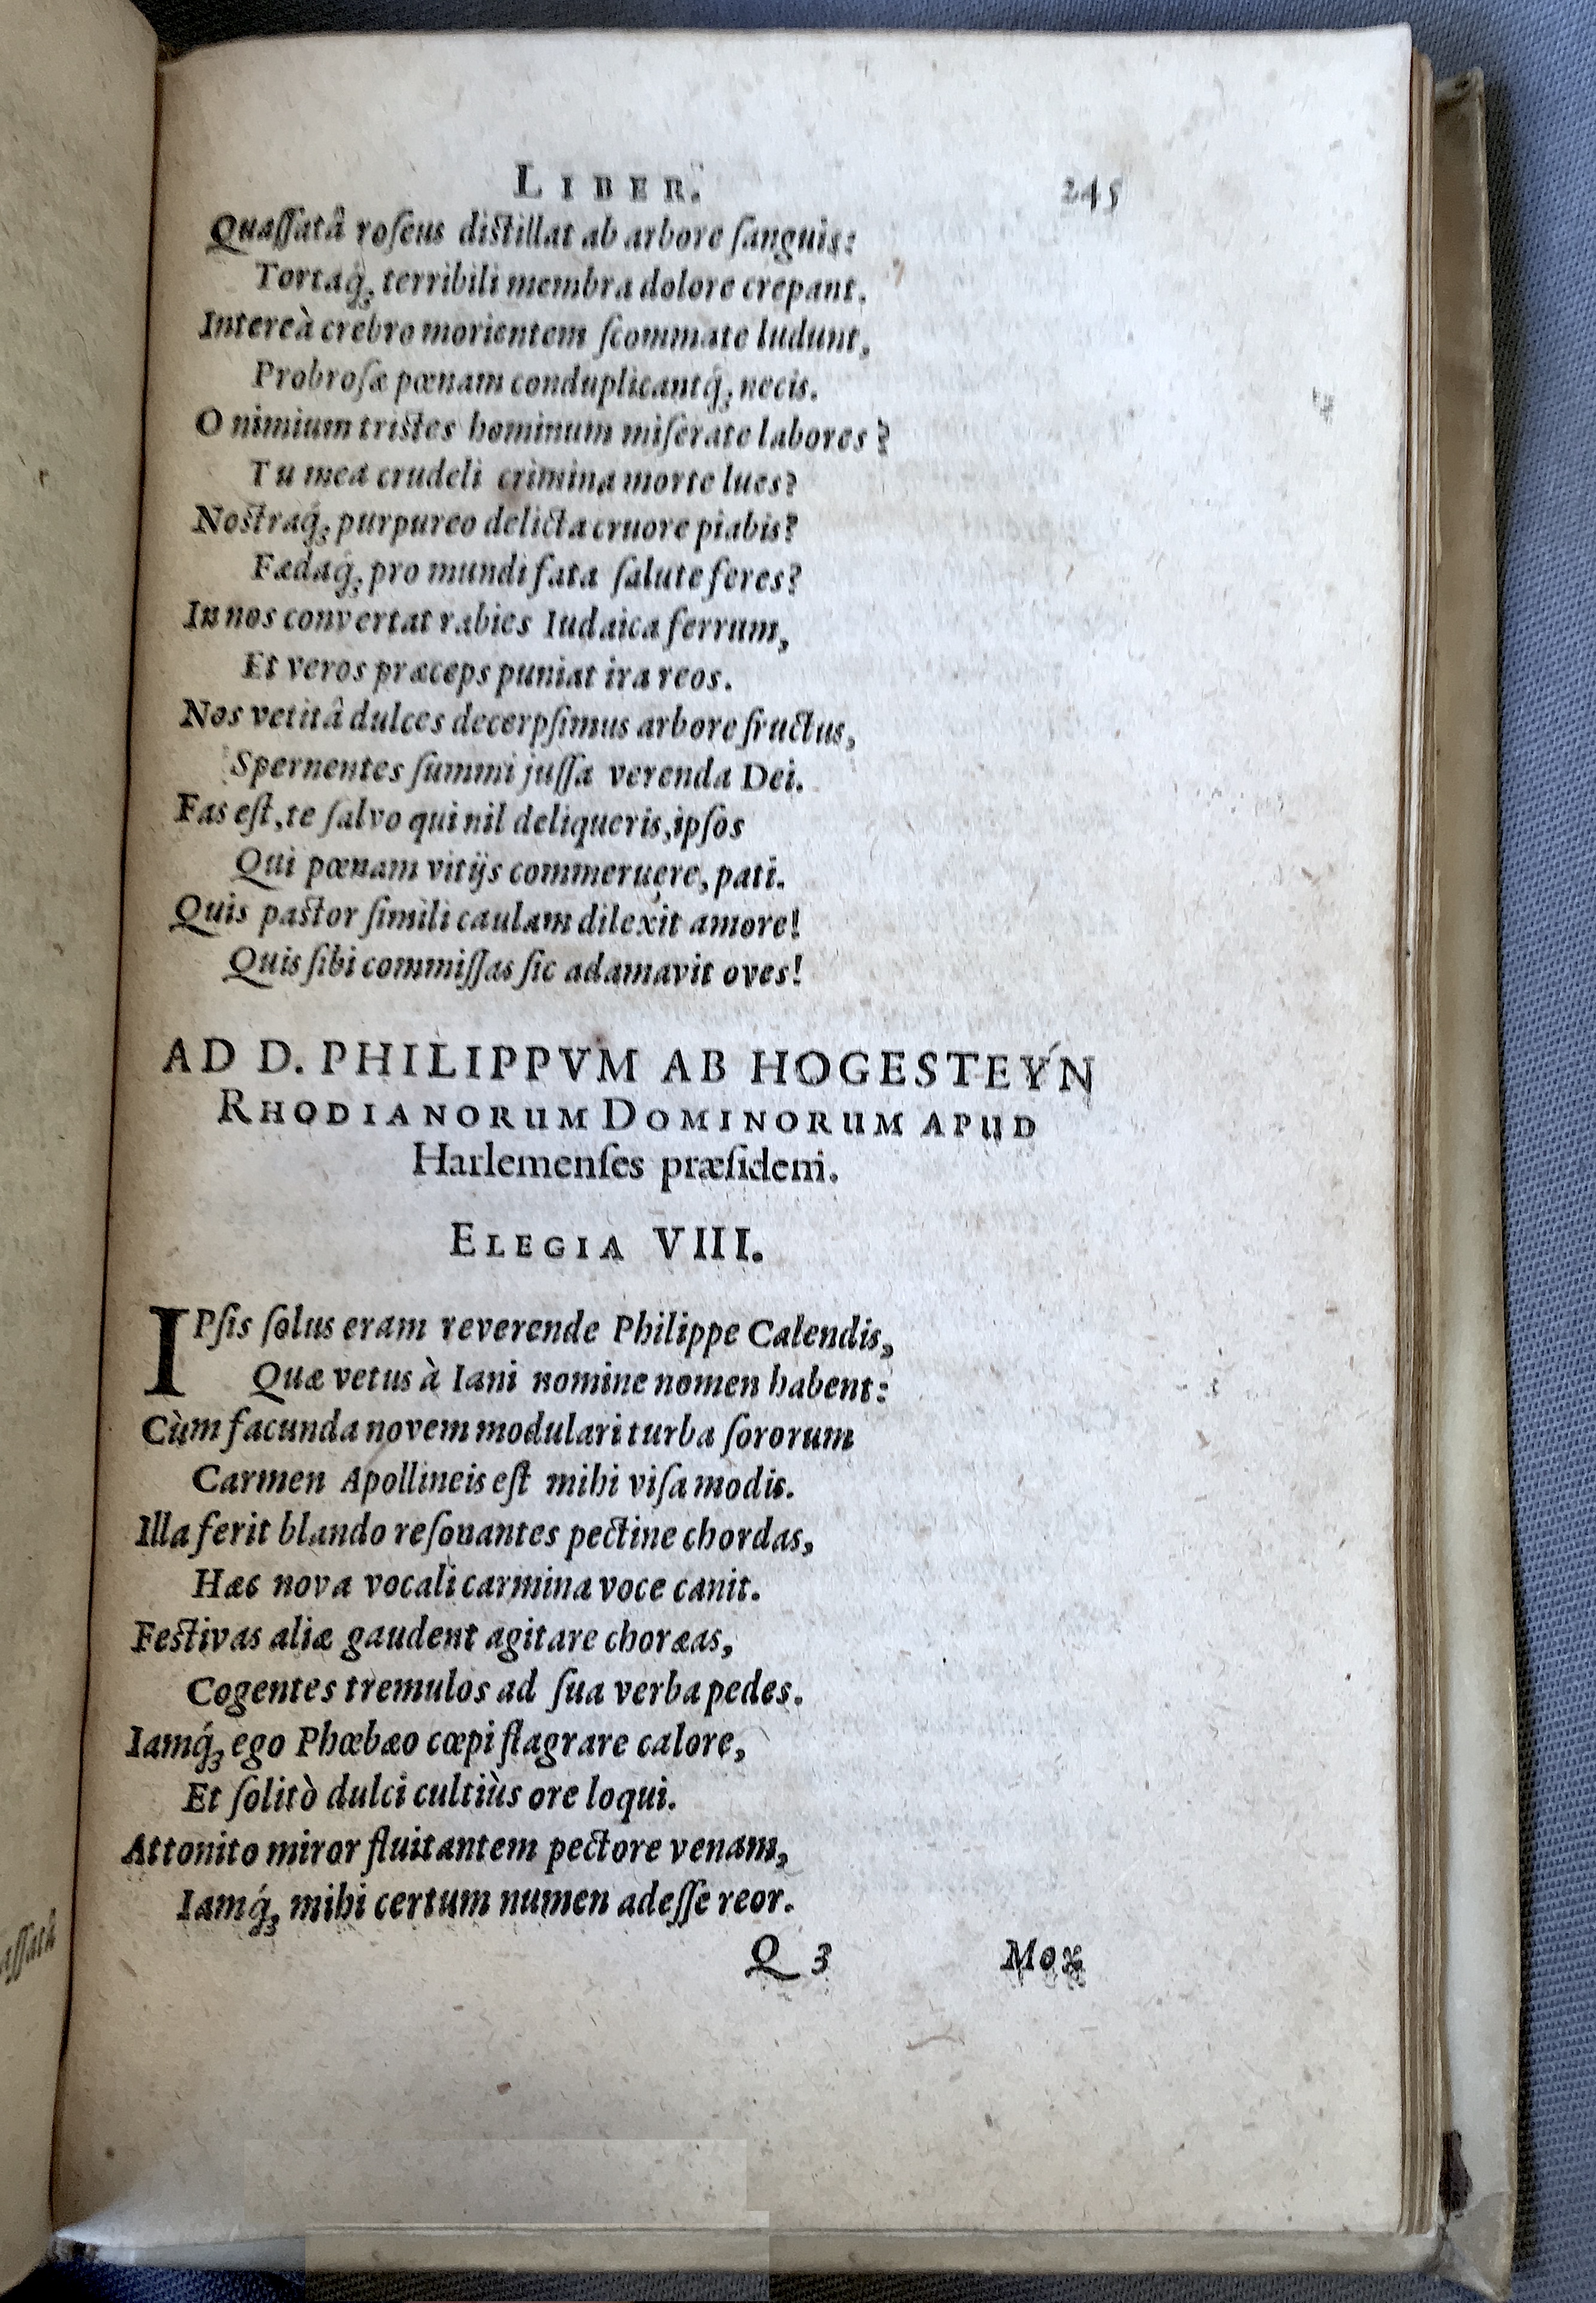 LIBER. 245
Quaſſatâ roſeus diſtillat ab arbore ſanguis:
Tortaq́ꝫ terribili membra dolore crepant.
Intereà crebro morientem ſcommate ludunt,
Probroſæ pœnam conduplicantq́ꝫ necis.
O nimium triſtes hominum miſerate labores?
Tu mea crudeli crimina morte lues?
Noſtraq́ꝫ purpureo delicta cruore piabis?
Fædaq́ꝫ pro mundi fata ſalute feres?
In nos convertat rabies Iudaica ferrum,
Et veros præceps puniat ira reos.
Nos vetitâ dulces decerpſimus arbore fructus,
Spernentes ſummi juſſa verenda Dei.
Fas eſt, te ſalvo qui nil deliqueris, ipſos
Qui pœnam vitijs commeruere, pati.
Quis paſtor ſimili caulam dilexit amore!
Quis ſibi commiſſas ſic adamavit oves!
AD D. PHILIPPVM AB HOGESTEYN
RHODIANORUM DOMINORUM APUD
Harlemenſes præſidem.
ELEGIA VIII.
IPſis ſolus eram reverende Philippe Calendis,
Quæ vetus à Iani nomine nomen habent:
Cùm facunda novem modulari turba ſororum
Carmen Apollineis eſt mihi viſa modis.
Illa ferit blando reſonantes pectine chordas,
Hæc nova vocali carmina voce canit.
Feſtivas aliæ gaudent agitare choræas,
Cogentes tremulos ad ſua verba pedes.
Iamq́ꝫ ego Phœbæo cœpi flagrare calore,
Et ſolitò dulci cultiùs ore loqui.
Attonito miror fluitantem pectore venam,
Iamq́ꝫ mihi certum numen adeſſe reor.
Q 3 Mox